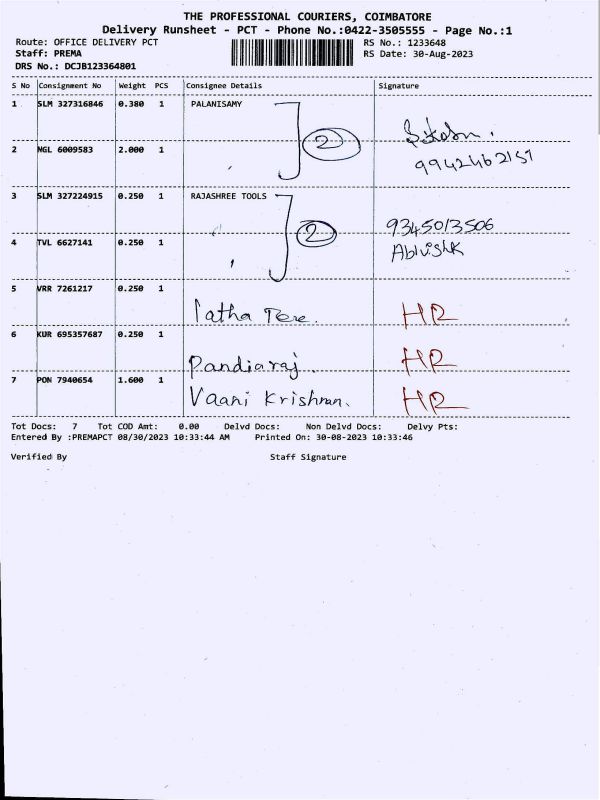 THE PROFESSIONAL COURIERS, COIMBATORE
Delivery Runsheet - PCT - Phone No.:0422-3505555 - Page No.:1
Route: OFFICE DELIVERY PCT RS No.: 1233648
Staff: PREMA RS Date: 30-Aug-2023
DRS No.: DCJB123364801
S No Consignment No Weight PCS Consignee Details Signature
1 SLM 327316846 0.380 1 PALANISAMY
2 9942462151
2 NGL 6009583 2.000 1
3 SLM 327224915 0.250 1 RAJASHREE TOOLS
2 9345013506
4 TVL 6627141 0.250 1 Abivishk
5 VRR 7261217 0.250 1
latha Tere. HR
6 KUR 695357687 0.250 1
Pandiaraj. HR
7 PON 7940654 1.600 1
Vaani Krishnan. HR
Tot Docs: 7 Tot COD Amt: 0.00 Delvd Docs: Non Delvd Docs: Delvy Pts:
Entered By :PREMAPCT 08/30/2023 10:33:44 AM Printed On: 30-08-2023 10:33:46
Verified By Staff Signature